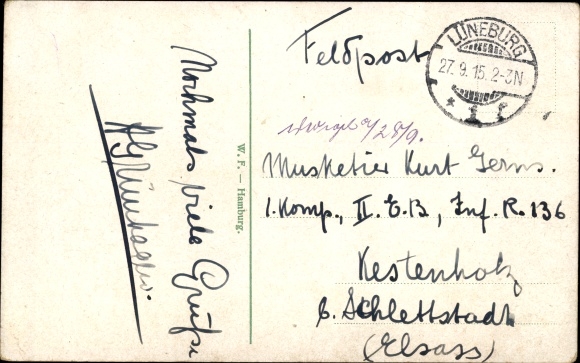 Nochmals viele Grüße
W. F. — Hamburg.
Feldpost
LÜNEBURG
27.9.15.2-3N
* 1 f
28/9.
Musketier Kurt Gerns.
1. Komp., II. E.B, Inf. R. 136
Kestenholz
b. Schlettstadt
(Elsass)